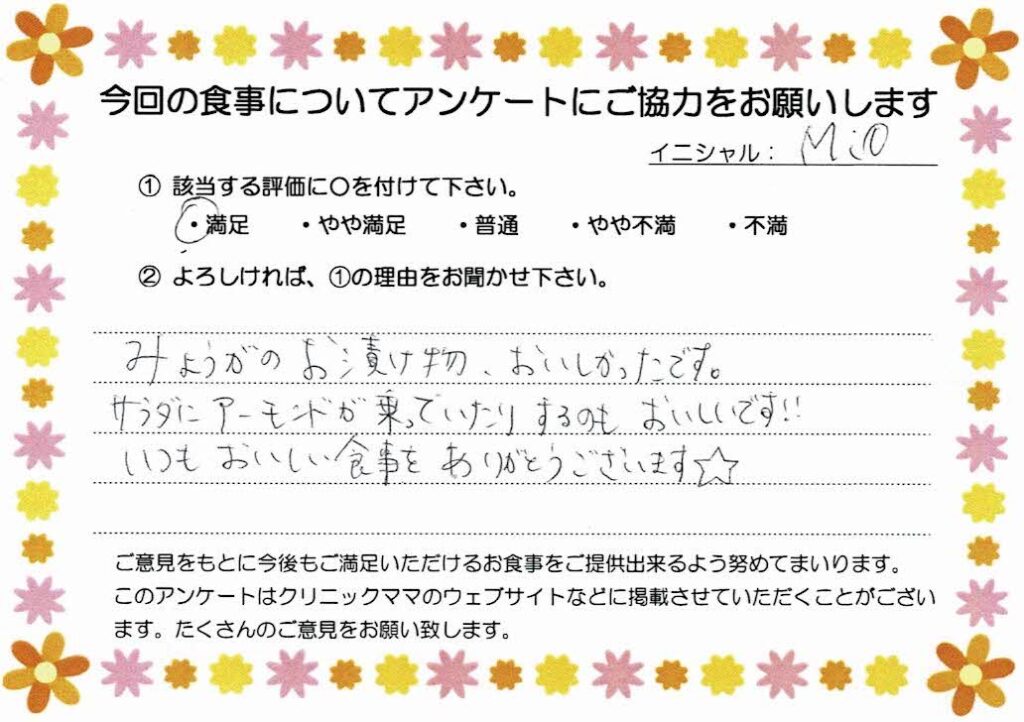 今回の食事についてアンケートにご協力をお願いします
イニシャル： MiO
① 該当する評価に〇を付けて下さい。
・満足 ・やや満足 ・普通 ・やや不満 ・不満
② よろしければ、①の理由をお聞かせ下さい。
みょうがのお漬け物、おいしかったです。
サラダにアーモンドが乗っていたりするのもおいしいです!!
いつもおいしい食事をありがとうございます☆
ご意見をもとに今後もご満足いただけるお食事をご提供出来るよう努めてまいります。
このアンケートはクリニックママのウェブサイトなどに掲載させていただくことがござい
ます。たくさんのご意見をお願い致します。